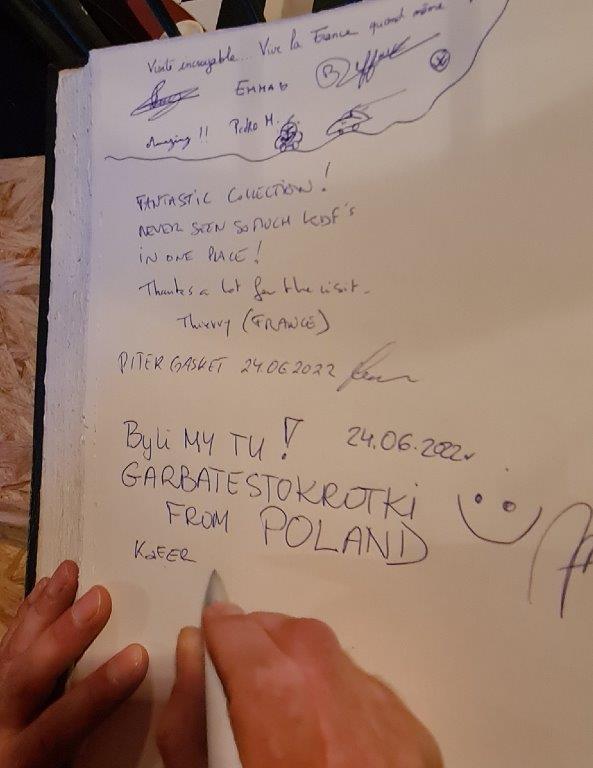 Visite incroyable... Vive la France quand même
EMMAB
Amazing !! Pedro M.
FANTASTIC COLLECTION!
NEVER SEEN SO MUCH KDF's
IN ONE PLACE!
Thanks a lot for the visit.
Thierry (FRANCE)
PITER GASKET 24.06.2022
Byli MY TU! 24.06.2022r
GARBATESTOKROTKI
FROM POLAND
KaFER